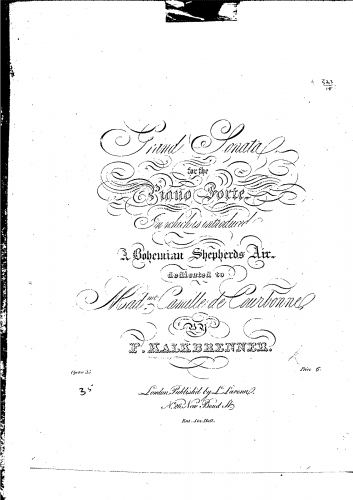 523
15
Grand Sonata
for the
Piano Forte.
In which is introduced
A Bohemian Shepherds Air.
dedicated to
Madme. Camille de Courbonne,
BY
F. KALKBRENNER.
Opera 35
Price 6.
35
London Published by L. Lavenu,
No. 28, New Bond St.
Ent. Sta. Hall.